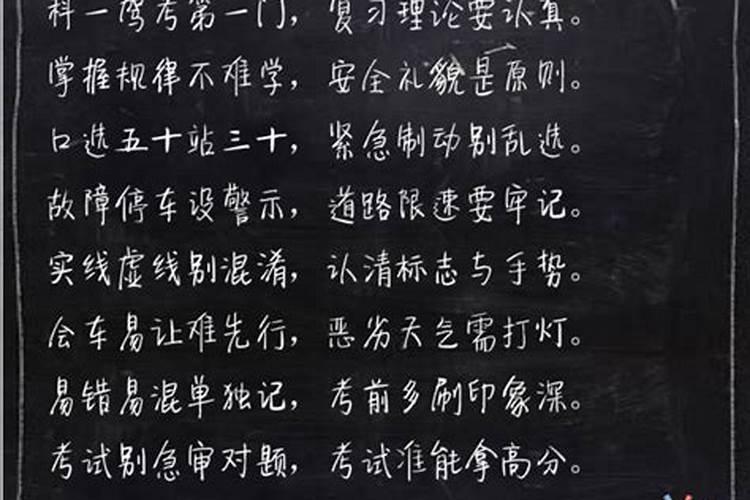 科一驾考第一门，复习理论要认真。
掌握规律不难学，安全礼貌是原则。
口选五十站三十，紧急制动别乱选。
故障停车设警示，道路限速要牢记。
实线虚线别混淆，认清标志与手势。
会车易让难先行，恶劣天气需打灯。
易错易混单独记，考前多刷印象深。
考试别急审对题，考试准能拿高分。